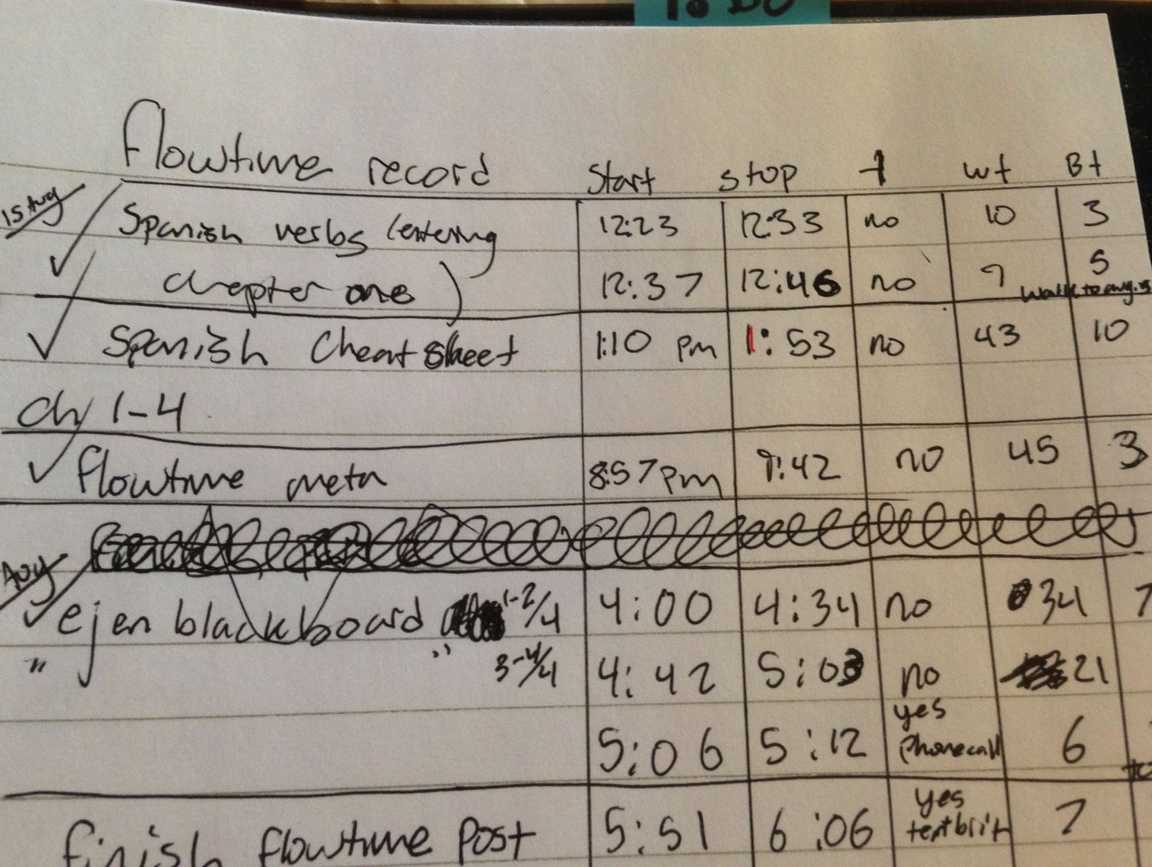 To Do
flowtime record start stop I wt Bt
15 Aug Spanish verbs (entering 12:23 12:33 no 10 3
chapter one) 12:37 12:46 no 9 5
walk to
✓ Spanish Cheat sheet 1:10 pm 1:53 no 43 10
ch 1-4
✓ flowtime meta 8:57 pm 9:42 no 45 3
Aug
✓ ejen blackboard 1-2/4 4:00 4:34 no 34 7
" " 3-4/4 4:42 5:03 no 21
5:06 5:12 yes phonecall 6
to
finish flowtime post 5:51 6:06 yes 7